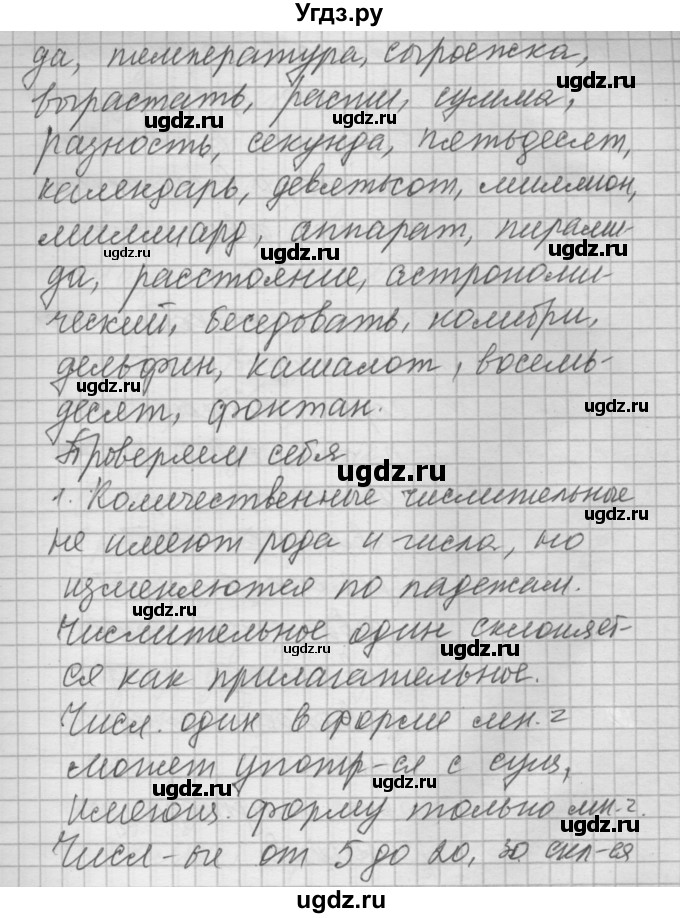 Угдз.ру
да, температура, сыроежка,
ugdz.ru
вырастать, расти, сумма,
ugdz.ru ugdz.ru
разность, секунда, пятьдесят,
ugdz.ru
календарь, девятьсот, миллион,
миллиард, аппарат, пирами-
ugdz.ru ugdz.ru
да, расстояние, астрономи-
ческий, беседовать, колибри,
дельфин, кашалот, восемь-
ugdz.ru
десят, фонтан.
ugdz.ru
Проверяем себя
ugdz.ru
1. Количественные числительные
ugdz.ru
не имеют рода и числа, но
изменяются по падежам.
ugdz.ru
Числительное один склоняет-
ugdz.ru ugdz.ru
ся как прилагательное.
Числ. один в форме мн. г
может употр-ся с сущ,
ugdz.ru ugdz.ru
имеющ. форму только мн. ч.
ugdz.ru
Числ-ые от 5 до 20, 30 скл-ся
ugdz.ru